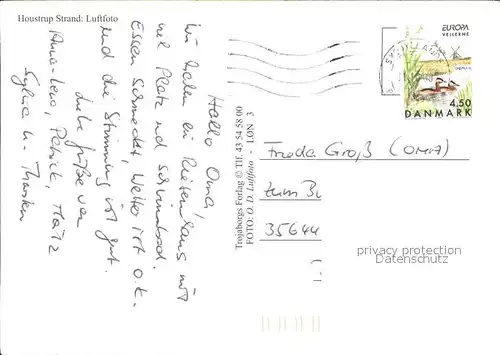 Houstrup Strand: Luftfoto
Hallo Oma,
wir haben ein Riesenhaus mit
viel Platz und Schwimmbad.
Essen schmeckt, Wetter ist o.k.
und die Stimmung ist gut.
Liebe Grüße von
Anna-Lena, Patrick, Mätz
Sylvia u. Thorsten
Trojaborgs Forlag © Tlf. 43 54 58 00
FOTO: O. D. Luftfoto - LØN 3
EUROPA
VEJLERNE
4.50
DANMARK
Frieda Groß (OMA)
zum Bu
35644
privacy protection
Datenschutz